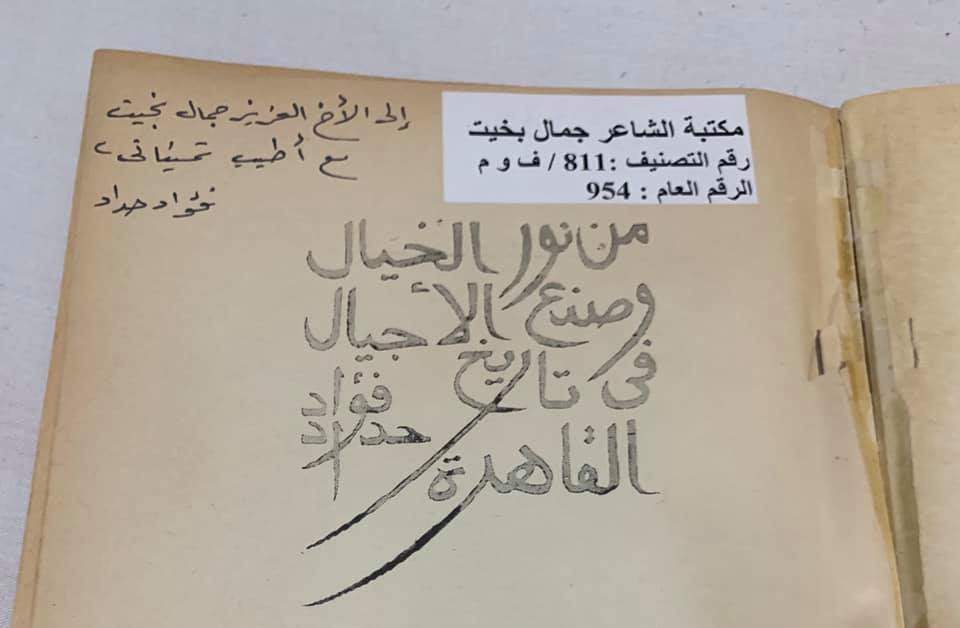 إلى الأخ العزيز جمال بخيت
مع أطيب تمنياتى
فؤاد حداد
مكتبة الشاعر جمال بخيت
رقم التصنيف :811 / ف و م
الرقم العام : 954
من نور الخيال
وصنع الأجيال
فى تاريخ
القاهرة
فؤاد
حداد